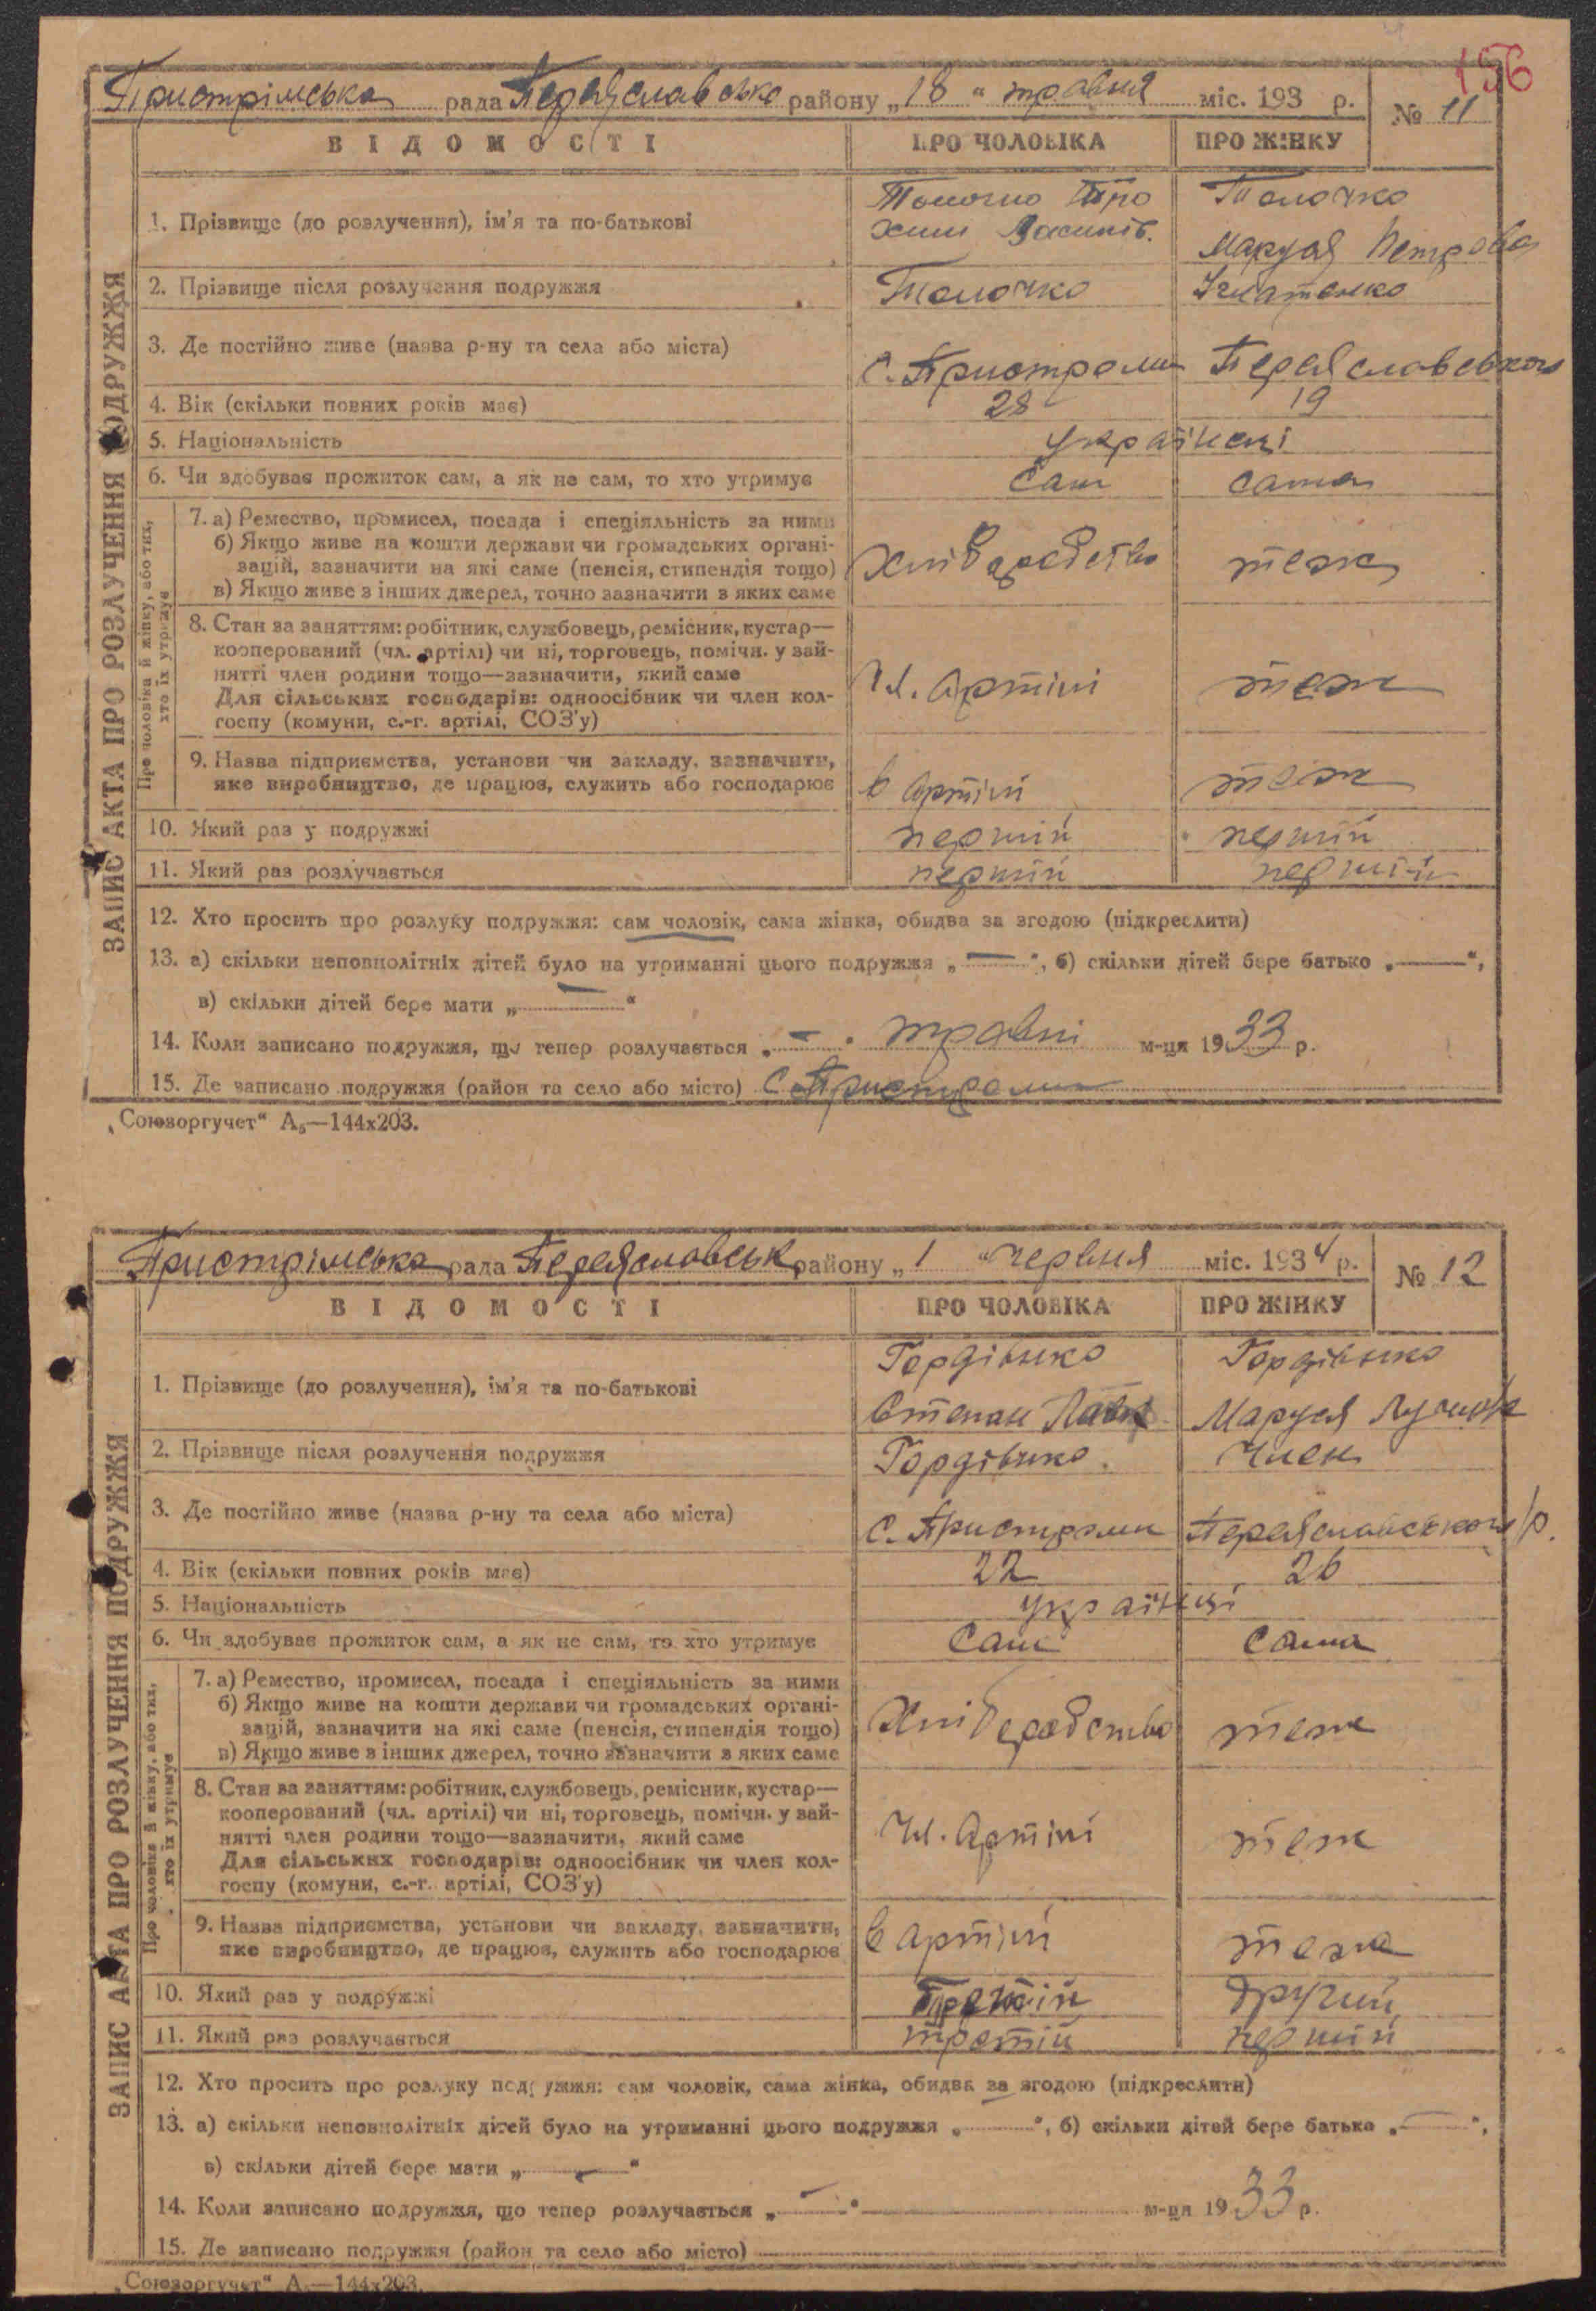 156
Пристрімська рада Переяславська району „18“ травня міс. 193 р. № 11
ВІДОМОСТІ ПРО ЧОЛОВІКА ПРО ЖІНКУ
ЗАПИС АКТА ПРО РОЗЛУЧЕННЯ ПОДРУЖЖЯ
1. Прізвище (до розлучення), ім’я та по-батькові
Толочко Тро Толочко
хим Васильов. Маруся Петрова
2. Прізвище після розлучення подружжя Толочко Ігнатенко
3. Де постійно живе (назва р-ну та села або міста) с. Пристроми Переяславського
4. Вік (скільки повних років має) 28 19
5. Національність українці
6. Чи здобуває прожиток сам, а як не сам, то хто утримує Сам сама
Про чоловіка й жінку, або тих,
хто їх утримує
7. а) Ремество, промисел, посада і спеціяльність за ними
б) Якщо живе на кошти держави чи громадських органі-
зацій, зазначити на які саме (пенсія, стипендія тощо) Хліборобство теж
в) Якщо живе з інших джерел, точно зазначити з яких саме
8. Стан за заняттям: робітник, службовець, ремісник, кустар—
кооперований (чл. артілі) чи ні, торговець, помічн. у зай-
нятті член родини тощо—зазначити, який саме Чл. артілі теж
Для сільських господарів: одноосібник чи член кол-
госпу (комуни, с.-г. артілі, СОЗ’у)
9. Назва підприємства, установи чи закладу, зазначити,
яке виробництво, де працює, служить або господарює в артілі теж
10. Який раз у подружжі перший перший
11. Який раз розлучається перший перший
12. Хто просить про розлуку подружжя: сам чоловік, сама жінка, обидва за згодою (підкреслити)
13. а) скільки неповнолітніх дітей було на утриманні цього подружжя „—“, б) скільки дітей бере батько „—“,
в) скільки дітей бере мати „—“
14. Коли записано подружжя, що тепер розлучається „—“ травні м-ця 1933 р.
15. Де записано подружжя (район та село або місто) с. Пристроми
„Союзоргучет“ А₅—144х203.
Пристрімська рада Переяславськ району „1 “ червня міс. 1934 р. № 12
ВІДОМОСТІ ПРО ЧОЛОВІКА ПРО ЖІНКУ
ЗАПИС АКТА ПРО РОЗЛУЧЕННЯ ПОДРУЖЖЯ
Гордієнко Гордієнко
1. Прізвище (до розлучення), ім’я та по-батькові
Степан Павл Маруся
2. Прізвище після розлучення подружжя Гордієнко Член
3. Де постійно живе (назва р-ну та села або міста) с. Пристроми Переяславського р.
4. Вік (скільки повних років має) 22 26
5. Національність українці
6. Чи здобуває прожиток сам, а як не сам, то хто утримує Сам Сама
Про чоловіка й жінку, або тих,
хто їх утримує
7. а) Ремество, промисел, посада і спеціяльність за ними
б) Якщо живе на кошти держави чи громадських органі-
зацій, зазначити на які саме (пенсія, стипендія тощо) Хліборобство теж
в) Якщо живе з інших джерел, точно зазначити з яких саме
8. Стан за заняттям: робітник, службовець, ремісник, кустар—
кооперований (чл. артілі) чи ні, торговець, помічн. у зай-
нятті член родини тощо—зазначити, який саме Чл. артілі теж
Для сільських господарів: одноосібник чи член кол-
госпу (комуни, с.-г. артілі, СОЗ’у)
9. Назва підприємства, установи чи закладу, зазначити,
яке виробництво, де працює, служить або господарює в артілі теж
10. Який раз у подружжі Третій другий
11. Який раз розлучається третій перший
12. Хто просить про розлуку подружжя: сам чоловік, сама жінка, обидва за згодою (підкреслити)
13. а) скільки неповнолітніх дітей було на утриманні цього подружжя „ “, б) скільки дітей бере батько „—“,
в) скільки дітей бере мати „—“
14. Коли записано подружжя, що тепер розлучається „—“ м-ця 1933 р.
15. Де записано подружжя (район та село або місто)
„Союзоргучет“ А₅—144х203.